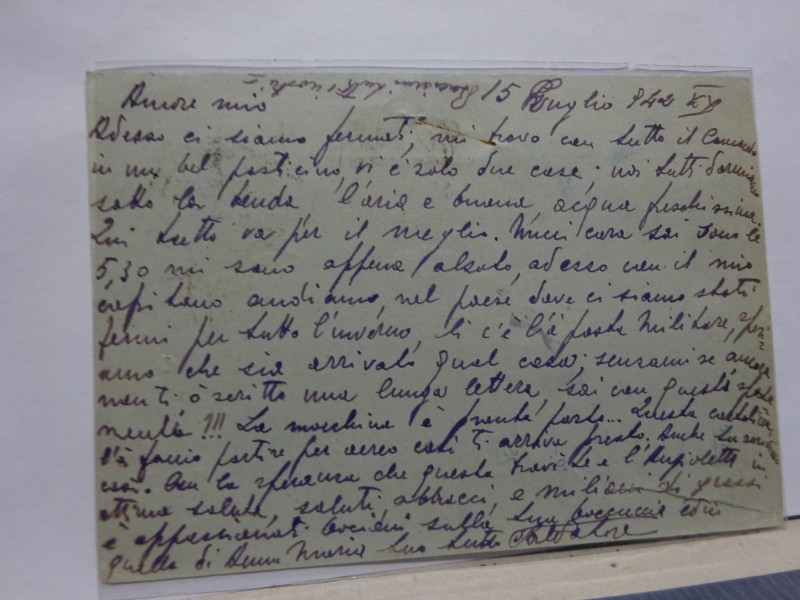 Baciami tutti i nostri
15 Luglio 942 XX
Amore mio
Adesso ci siamo fermati, mi trovo con tutto il Comando
in un bel posticino, vi è solo due case; noi tutti dormiamo
sotto la tenda l'aria e buona acqua freschissima.
Qui tutto va per il meglio. Nucci cara sai sono le
5,30 mi sono appena alzato, adesso con il mio
capitano andiamo, nel paese dove ci siamo stati
fermi per tutto l'inverno, li c'è l'à posta Militare, speri=
amo che sia arrivata qual cosa; scusami se ancora
non ti ò scritto una lunga lettera, sai con questi sposta
menti!!! La macchina è pronta parto... Questa cartolina
l'à faccio partire per aereo così ti arriva presto. Anche tu scrivimi
così. Con la speranza che questa trovi te e l'Angioletti in
ottima salute, saluti, abbracci, e milioni di grossi
e appassionati bacioni sulla tua boccuccia ed in
quella di Anna Maria tuo tutto Salvatore